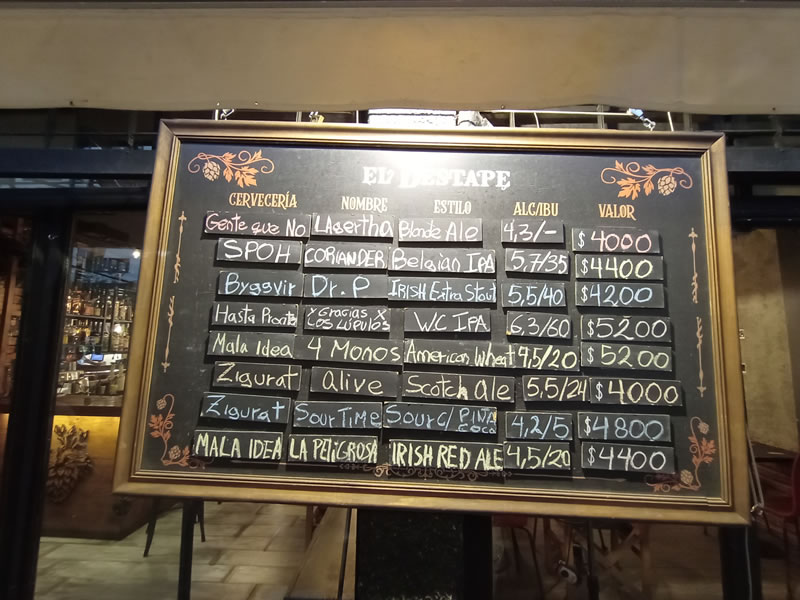 EL DESTAPE
CERVECERÍA NOMBRE ESTILO ALC/IBU VALOR
Gente que No LAgertha Blonde Ale 4,3/- $4000
SPOH CORIANDER Belgian IPA 5,7/35 $4400
Byggvir Dr. P IRISH Extra Stout 5,5/40 $4200
Hasta Pronto y Gracias X LOS LÚPULOS WC IPA 6,3/60 $5200
Mala Idea 4 Monos American Wheat 4,5/20 $5200
Zigurat alive Scotch Ale 5,5/24 $4000
Zigurat SourTime Sour C/ PIÑA COCO 4,2/5 $4800
MALA IDEA LA PELIGROSA IRISH RED ALE 4,5/20 $4400